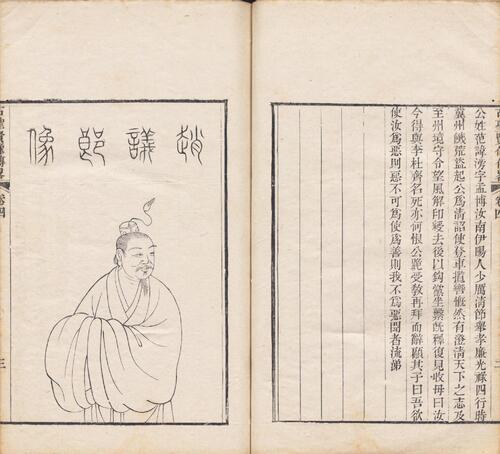 卷四
公姓范諱滂字孟博汝南伊陽人少厲清節舉孝廉光祿四行時
冀州饑荒盜起公爲清詔使登車攬轡慨然有澄清天下之志及
至州境守令望風解印綬去後以鉤黨坐繫旣釋復見收母曰汝
今得與李杜齊名死亦何恨公跪受敎再拜而辭顧其子曰吾欲
使汝爲惡則惡不可爲使爲善則我不爲惡聞者流涕
趙議郎像
卷四
三